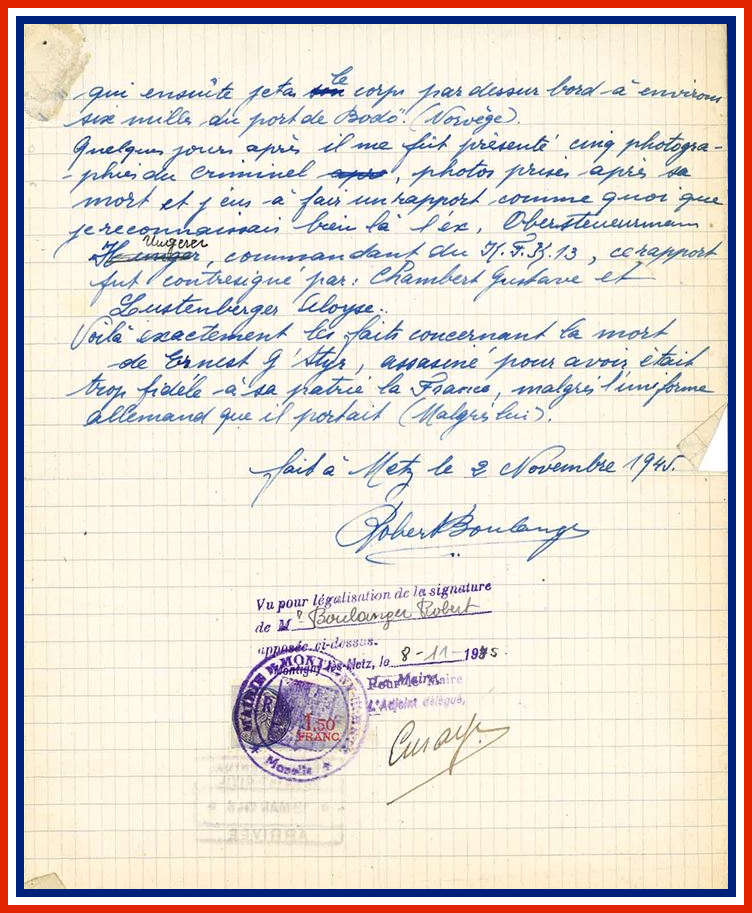 qui ensuite jeta son le corps par dessur bord à environ
six milles du port de Bodö. (Norvège).
Quelques jours après il me fût présenté cinq photogra-
-phies du criminel apre, photos prises après sa
mort et j'eus à fair un rapport comme quoi que
je reconnaissais bien là l'éx. Obersteueurmann
Ungerer, commandant du K.F.K.13, ce rapport
fut contresigné par: Chambert Gustave et
Lustenberger Aloyse.
Voilà exactement les faits concernant la mort
de Ernest G'Styr, assasiné pour avoir était
trop fidéle à sa patrie la France, malgrés l'uneforme
allemand que il portait (Malgrés lui).
fait à Metz le 2 Novembre 1945.
Robert Boulanger
Vu pour légalisation de la signature
de Mr Boulanger Robert
apposée ci-dessus.
Montigny-lès-Metz, le 8-11-1945.
Pour le Maire
L'Adjoint délégué,
MAIRIE DE MONTIGNY
Moselle
1.50
FRANC
ARRIVÉE